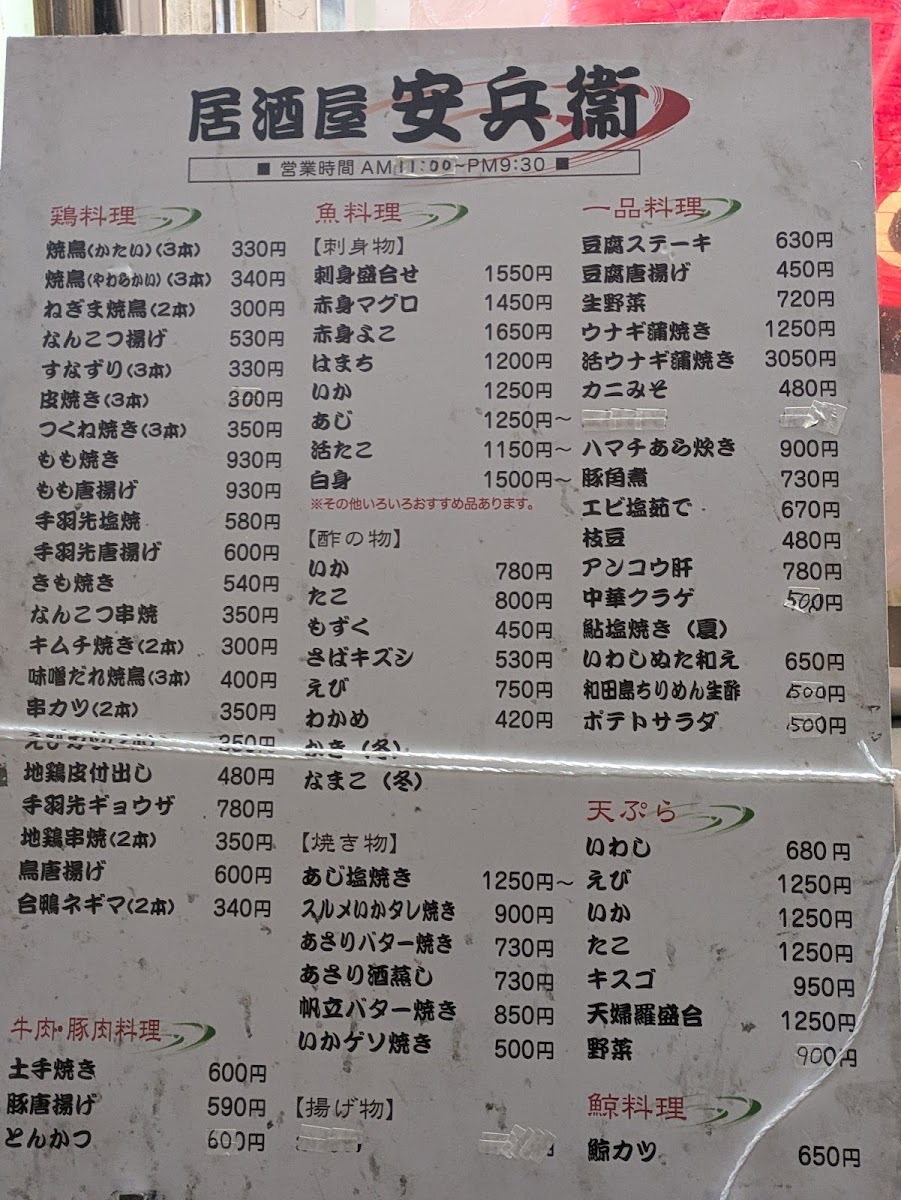 居酒屋 安兵衞
■ 営業時間 AM11:00~PM9:30 ■
鶏料理
焼鳥(かたい)(3本) 330円
焼鳥(やわらかい)(3本) 340円
ねぎま焼鳥(2本) 300円
なんこつ揚げ 530円
すなずり(3本) 330円
皮焼き(3本) 300円
つくね焼き(3本) 350円
もも焼き 930円
もも唐揚げ 930円
手羽先塩焼 580円
手羽先唐揚げ 600円
きも焼き 540円
なんこつ串焼 350円
キムチ焼き(2本) 300円
味噌だれ焼鳥(3本) 400円
串カツ(2本) 350円
350円
地鶏皮付出し 480円
手羽先ギョウザ 780円
地鶏串焼(2本) 350円
鳥唐揚げ 600円
合鴨ネギマ(2本) 340円
牛肉・豚肉料理
土手焼き 600円
豚唐揚げ 590円
とんかつ 600円
魚料理
【刺身物】
刺身盛合せ 1550円
赤身マグロ 1450円
赤身よこ 1650円
はまち 1200円
いか 1250円
あじ 1250円~
活たこ 1150円~
白身 1500円~
※その他いろいろおすすめ品あります。
【酢の物】
いか 780円
たこ 800円
もずく 450円
さばキズシ 530円
えび 750円
わかめ 420円
かき（冬）
なまこ（冬）
【焼き物】
あじ塩焼き 1250円~
スルメいかタレ焼き 900円
あさりバター焼き 730円
あさり酒蒸し 730円
帆立バター焼き 850円
いかゲソ焼き 500円
【揚げ物】
一品料理
豆腐ステーキ 630円
豆腐唐揚げ 450円
生野菜 720円
ウナギ蒲焼き 1250円
活ウナギ蒲焼き 3050円
カニみそ 480円
ハマチあら炊き 900円
豚角煮 730円
エビ塩茹で 670円
枝豆 480円
アンコウ肝 780円
中華クラゲ 500円
鮎塩焼き（夏）
いわしぬた和え 650円
和田島ちりめん生酢 500円
ポテトサラダ 500円
天ぷら
いわし 680円
えび 1250円
いか 1250円
たこ 1250円
キスゴ 950円
天婦羅盛合 1250円
野菜 900円
鯨料理
鯨カツ 650円